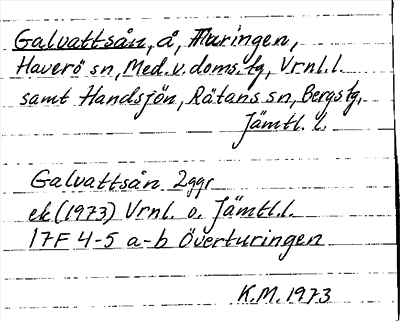 Galvattsån, å, Maringen,
Haverö sn, Med. v. doms. tg, Vrnl. l.
samt Handsjön, Rätans sn, Bergs tg,
Jämtl. l.
Galvattsån 2ggr
ek (1973) Vrnl. o. Jämtl.l.
17F 4-5 a-b Överturingen
K.M. 1973